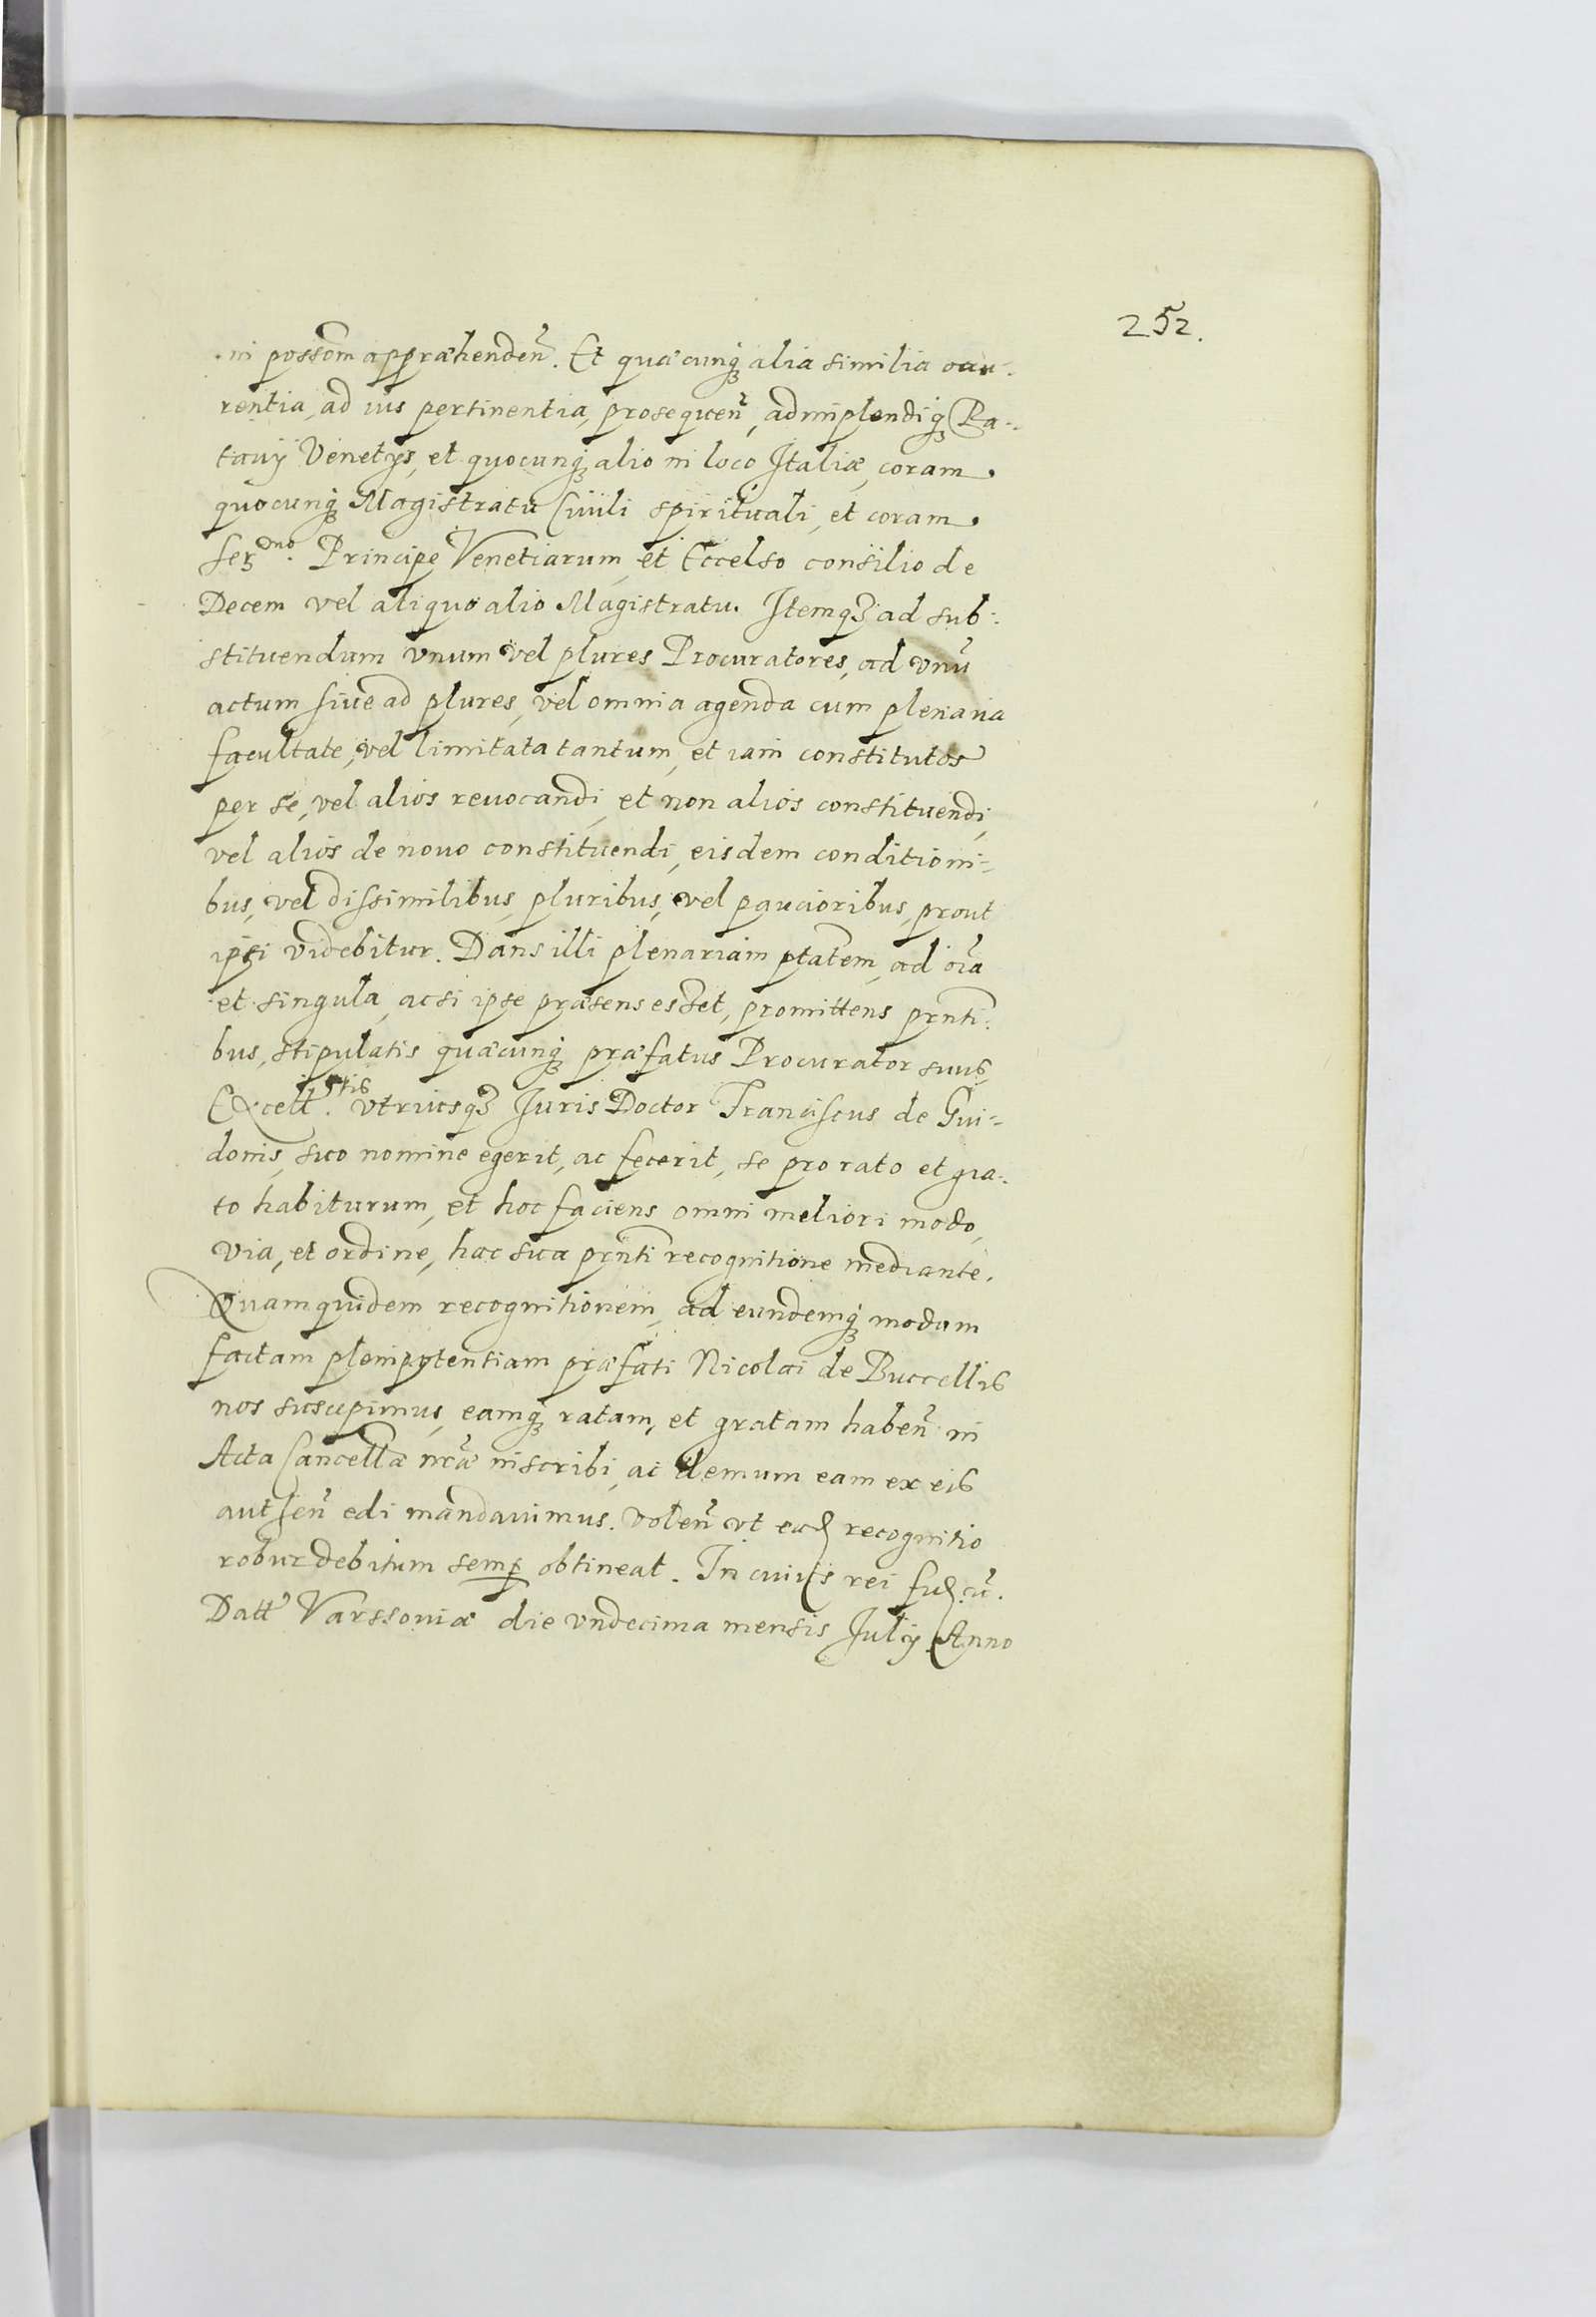 252.
in possom appræhenden̄. Et quæcunq̢ alia similia occu-
rentia, ad ius pertinentia, prosequen̄, adimplendiq̢ Pa-
tavij Venetijs, et quocunq̢ alio in loco Italiæ, coram
quocunq̢ Magistratu Civili spirituali, et coram
Ser.mo Principe Venetiarum, et Eccelso consilio de
Decem vel aliquo alio Magistratu. Itemq3 ad sub-
stituendum vnum vel plures Procuratores, ad vnū
actum siue ad plures, vel omnia agenda cum plenaria
facultate, vel limitata tantum, et iam constitutos
per se, vel alios reuocandi, et non alios constituendi,
vel alios de nouo constituendi, eisdem conditioni-
bus, vel dissimilibus, pluribus, vel paucioribus, prout
ipsi videbitur. Dans illi plenariam ptatem, ad oīa
et singula, ac si ipse præsens esset, promittens prnti-
bus, stipulatis quæcunq̢ præfatus Procurator suus,
Excell.ntis vtriusq3 Juris Doctor Franciscus de Gui-
donis, suo nomine egerit, ac fecerit, se pro rato et gra-
to habiturum, et hoc faciens omni meliori modo,
via, et ordine, hac sua prnti recognitione mediante.
Quamquidem recognitionem, ad eundemq̢ modum
factam plenipotentiam præfati Nicolai de Buccellis
nos suscepimus, eamq̢ ratam, et gratam haben̄ in
Acta Cancellæ nr̄æ inscribi, ac demum eam ex eis
autħen̄ edi mandauimus. Volen̄ vt ead recognitio
robur debitum semp obtineat. In cuius rei fid cū.
Datt Varssouiæ die vndecima mensis Julij Anno